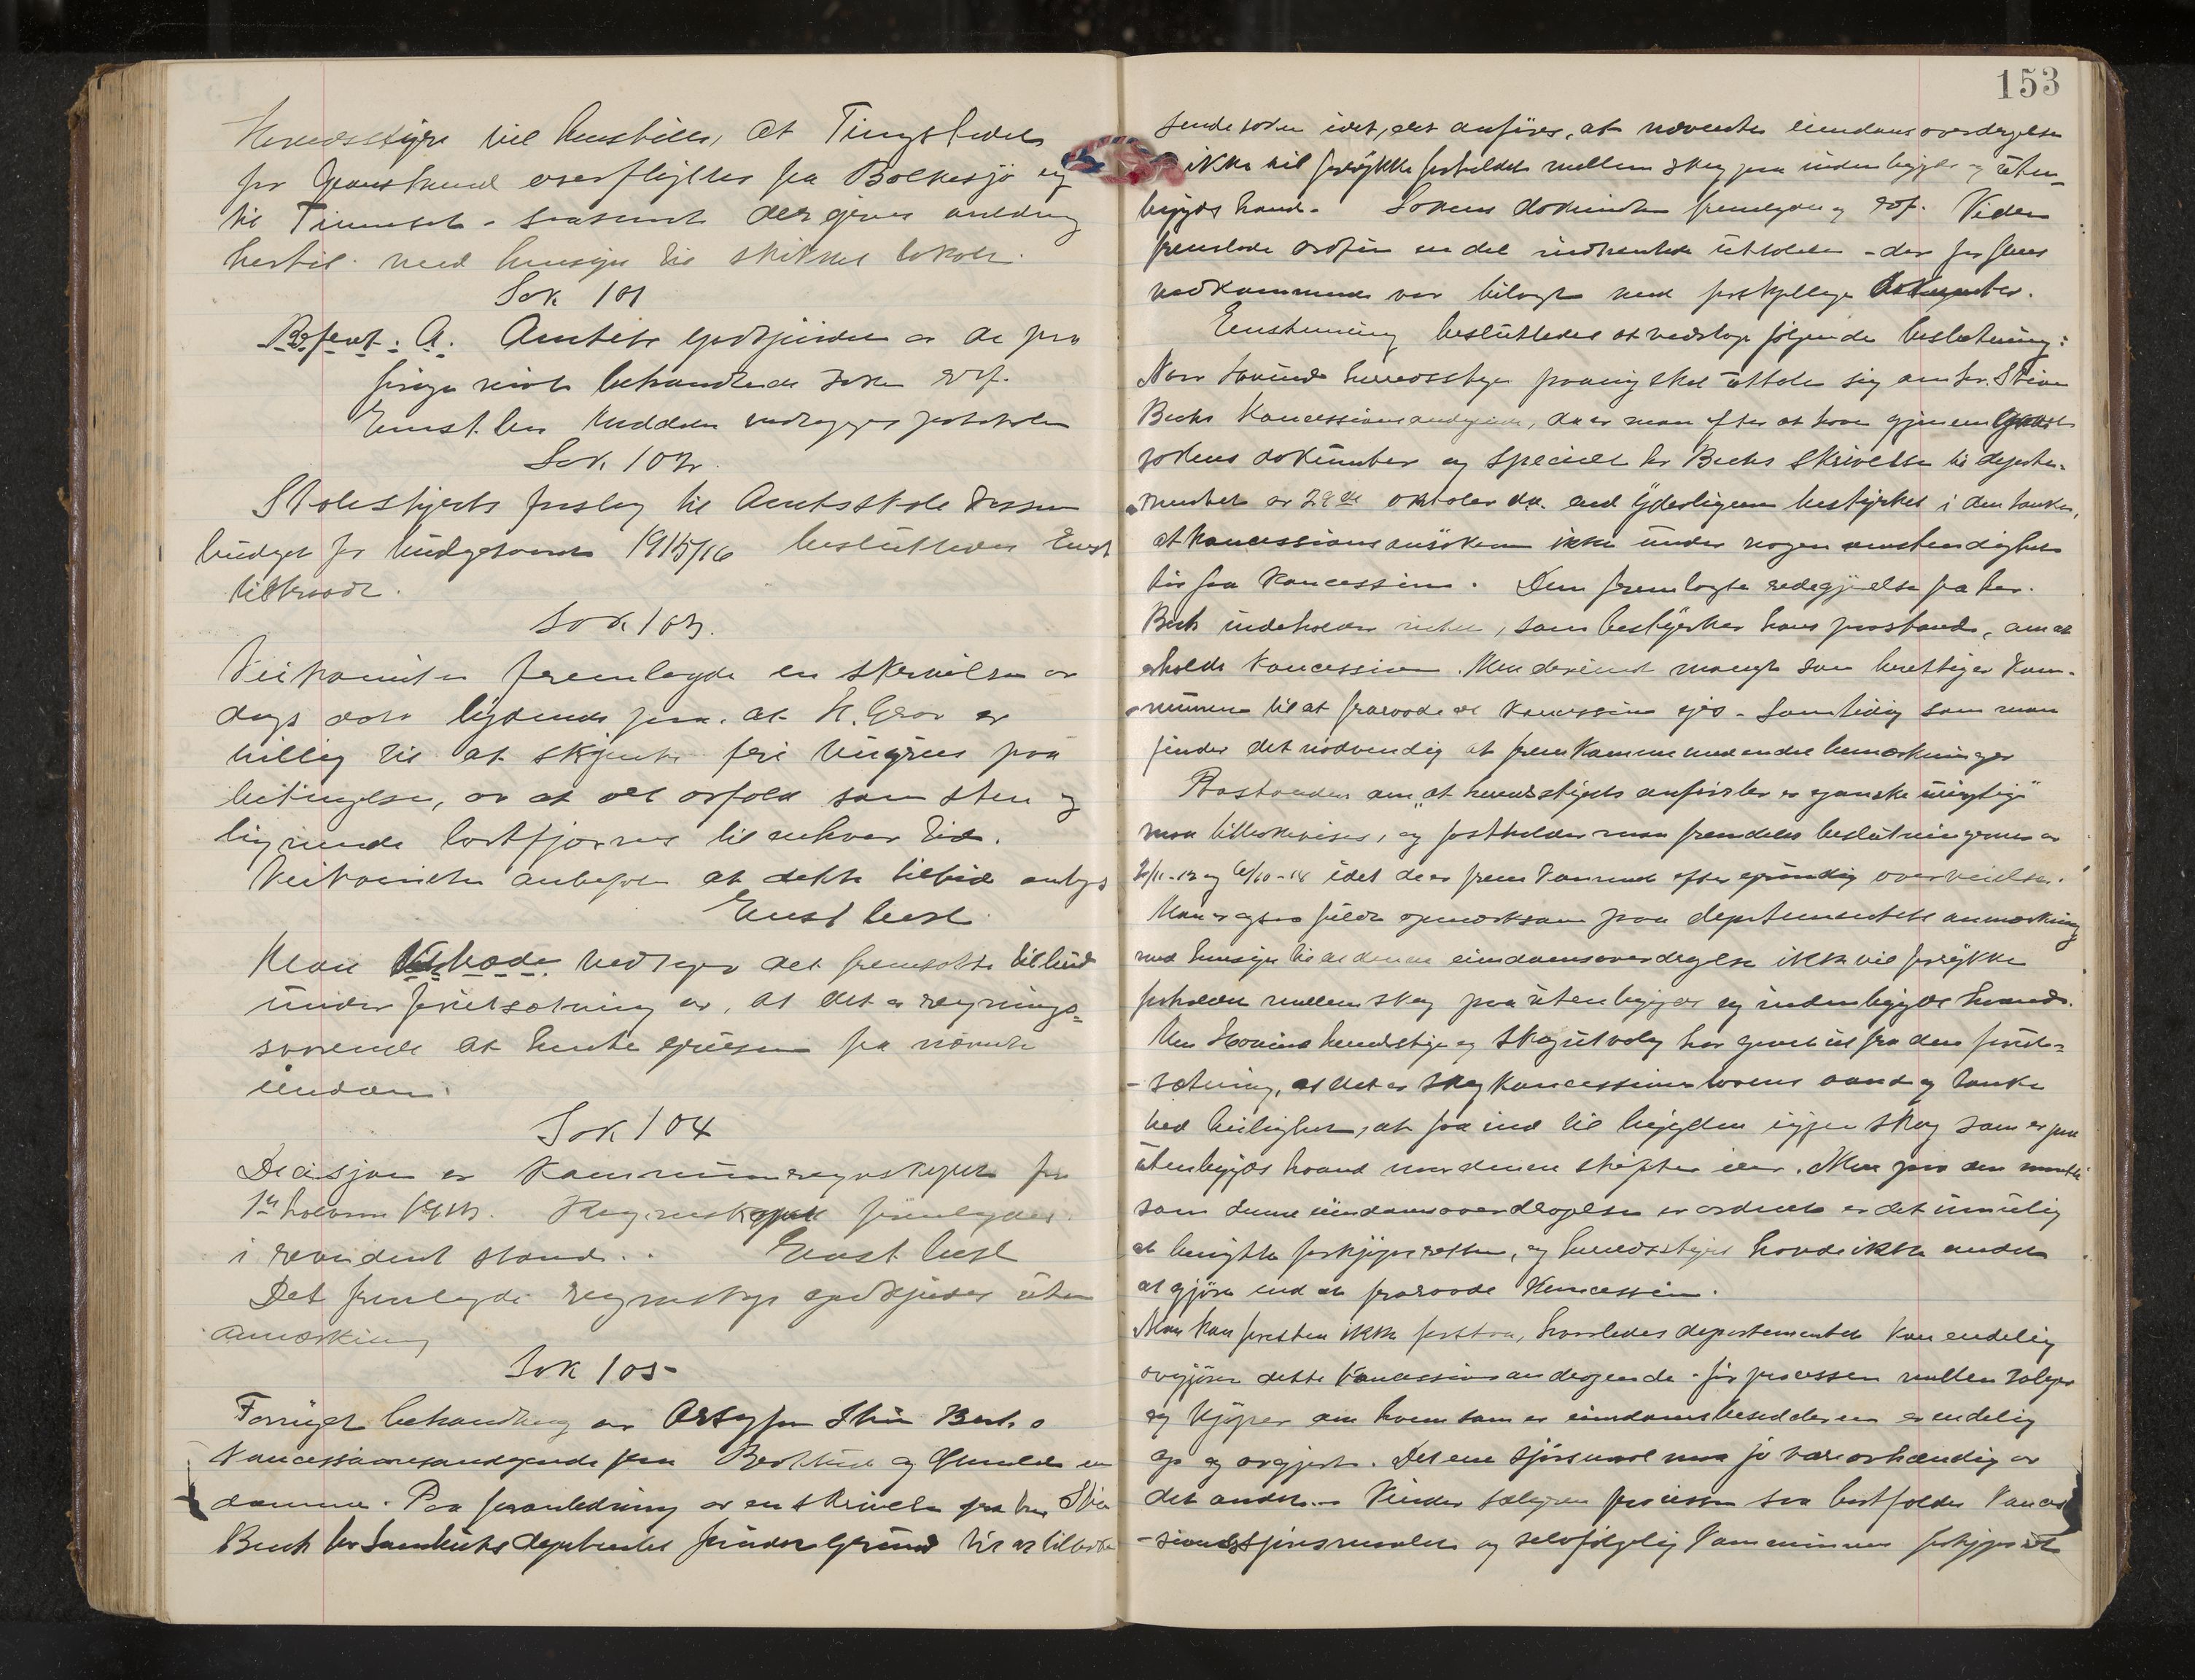 Herredsstyre vil henstille, at Tingstedet
for Gransherred overflyttes fra Bolkesjö og
til Tinnoset - saasnart der gives anledning
hertil med hensyn til skikket lokale.
Sak 101
Referat: A. Amtets godkjendelse av de paa
forrige möte behandlede saker ref.
Enst. bes.
Sak 102.
Skolestyrets forslag til Amtsskolekassen
budget for budgetaaret 1915/16 besluttedes Enst
tiltraadt.
Sak 103.
Veikomiten fremlagde en skrivelse av
dags dato lydende paa, at H. Grav er
villig til at skjænke fri veigrus paa
betingelse, av at alt avfald som sten og
lignende bortfjærnes til enhver tid.
Veikomiten anbefaler at dette tilbud antages
Enst. besl.
Man vedtager det fremsatte tilbud
under forutsætning av, at det er regnings=
svarende at hente grusen fra nævnte
eiendom.
Sak 104
Decisjon av kommuneregnskapet for
1ste halvaar 1914. Regnskapet fremlagdes
i revidert stand. Enst. besl.
Det fremlagte regnskap godkjendes uten
anmerkning
Sak 105
Fornyet behandling av Stein Becks
koncessionsandragende paa og
damme. Paa foranledning av en skrivelse fra hr. Stein
Beck til Landbruks departementet finder grund til at tilbake
153
sende saken idet, det anföres, at nævnte eiendomsoverdragelse
ikke vil forrykke forholdet mellem skog paa indenbygds og uten=
bygds haand. Sakens dokumenter fremlagdes og ref. Videre
fremlagde ordföreren en del indhentede uttalelser - der for fleres
vedkommende var bilagt med forskjellige dokumenter.
Enstemmig besluttedes at vedtage fölgende beslutning:
Naar Hovind herredsstyre paany skal uttale sig om hr. Stein
Becks koncessionsandragende, da er man efter at have gjennemgaaet
sakens dokumenter og specielt hr Becks skrivelse til departe=
mentet av 28de oktober d.a. end yderligere bestyrket i den tanke,
at koncessionsansökeren ikke under nogen omstendighet
bör faa koncession. Den fremlagte redegjörelse fra hr.
Beck indeholder intet, som bestyrker hans paastand, om at
erholde koncession. Men derimot meget som berettiger kom=
munen til at fraraade at koncession gis - Samtidig som man
finder det nödvendig at fremkomme med endel bemerkninger
Paastanden om "at herredsstyrets anförsler er ganske uriktig"
maa tilbakevises, og fastholder man fremdeles beslutningerne av
2/11-13 og 6/10-14 idet de er fremkommet efter grundig overveielse.
Man er ogsaa fuldt opmerksom paa departementets anmerkning
med hensyn til at denne eiendomsoverdragelse ikke vil forrykke
forholdet mellem skog paa utenbygds og indenbygds haand.
Men Hovind herredsstyre og skogutvalg har gaaet ut fra den forut=
sætning, at det er skogkoncessionslovens aand og tanke
ved leilighet, at faa ind til bygden igjen skog som er paa
utenbygds haand naar denne skifter eier. Men paa den maate
som denne eiendomsoverdragelse er ordnet er det umulig
at benytte forkjöpsretten, og herredsstyret havde ikke andet
at gjöre end at fraraade koncession.
Man kan forresten ikke forstaa, hvorledes departementet kan endelig
avgjöre dette koncessionsandragende för processen mellem sælger
og kjöper om hvem som er eiendomsbesidderen er endelig
op og avgjort. Det ene spörsmaal maa jo være avhængig av
det andet. Vinder sælgeren processen saa bortfalder konces
-sionsspörsmaalet og selvfölgelig kommunens forkjöpsret